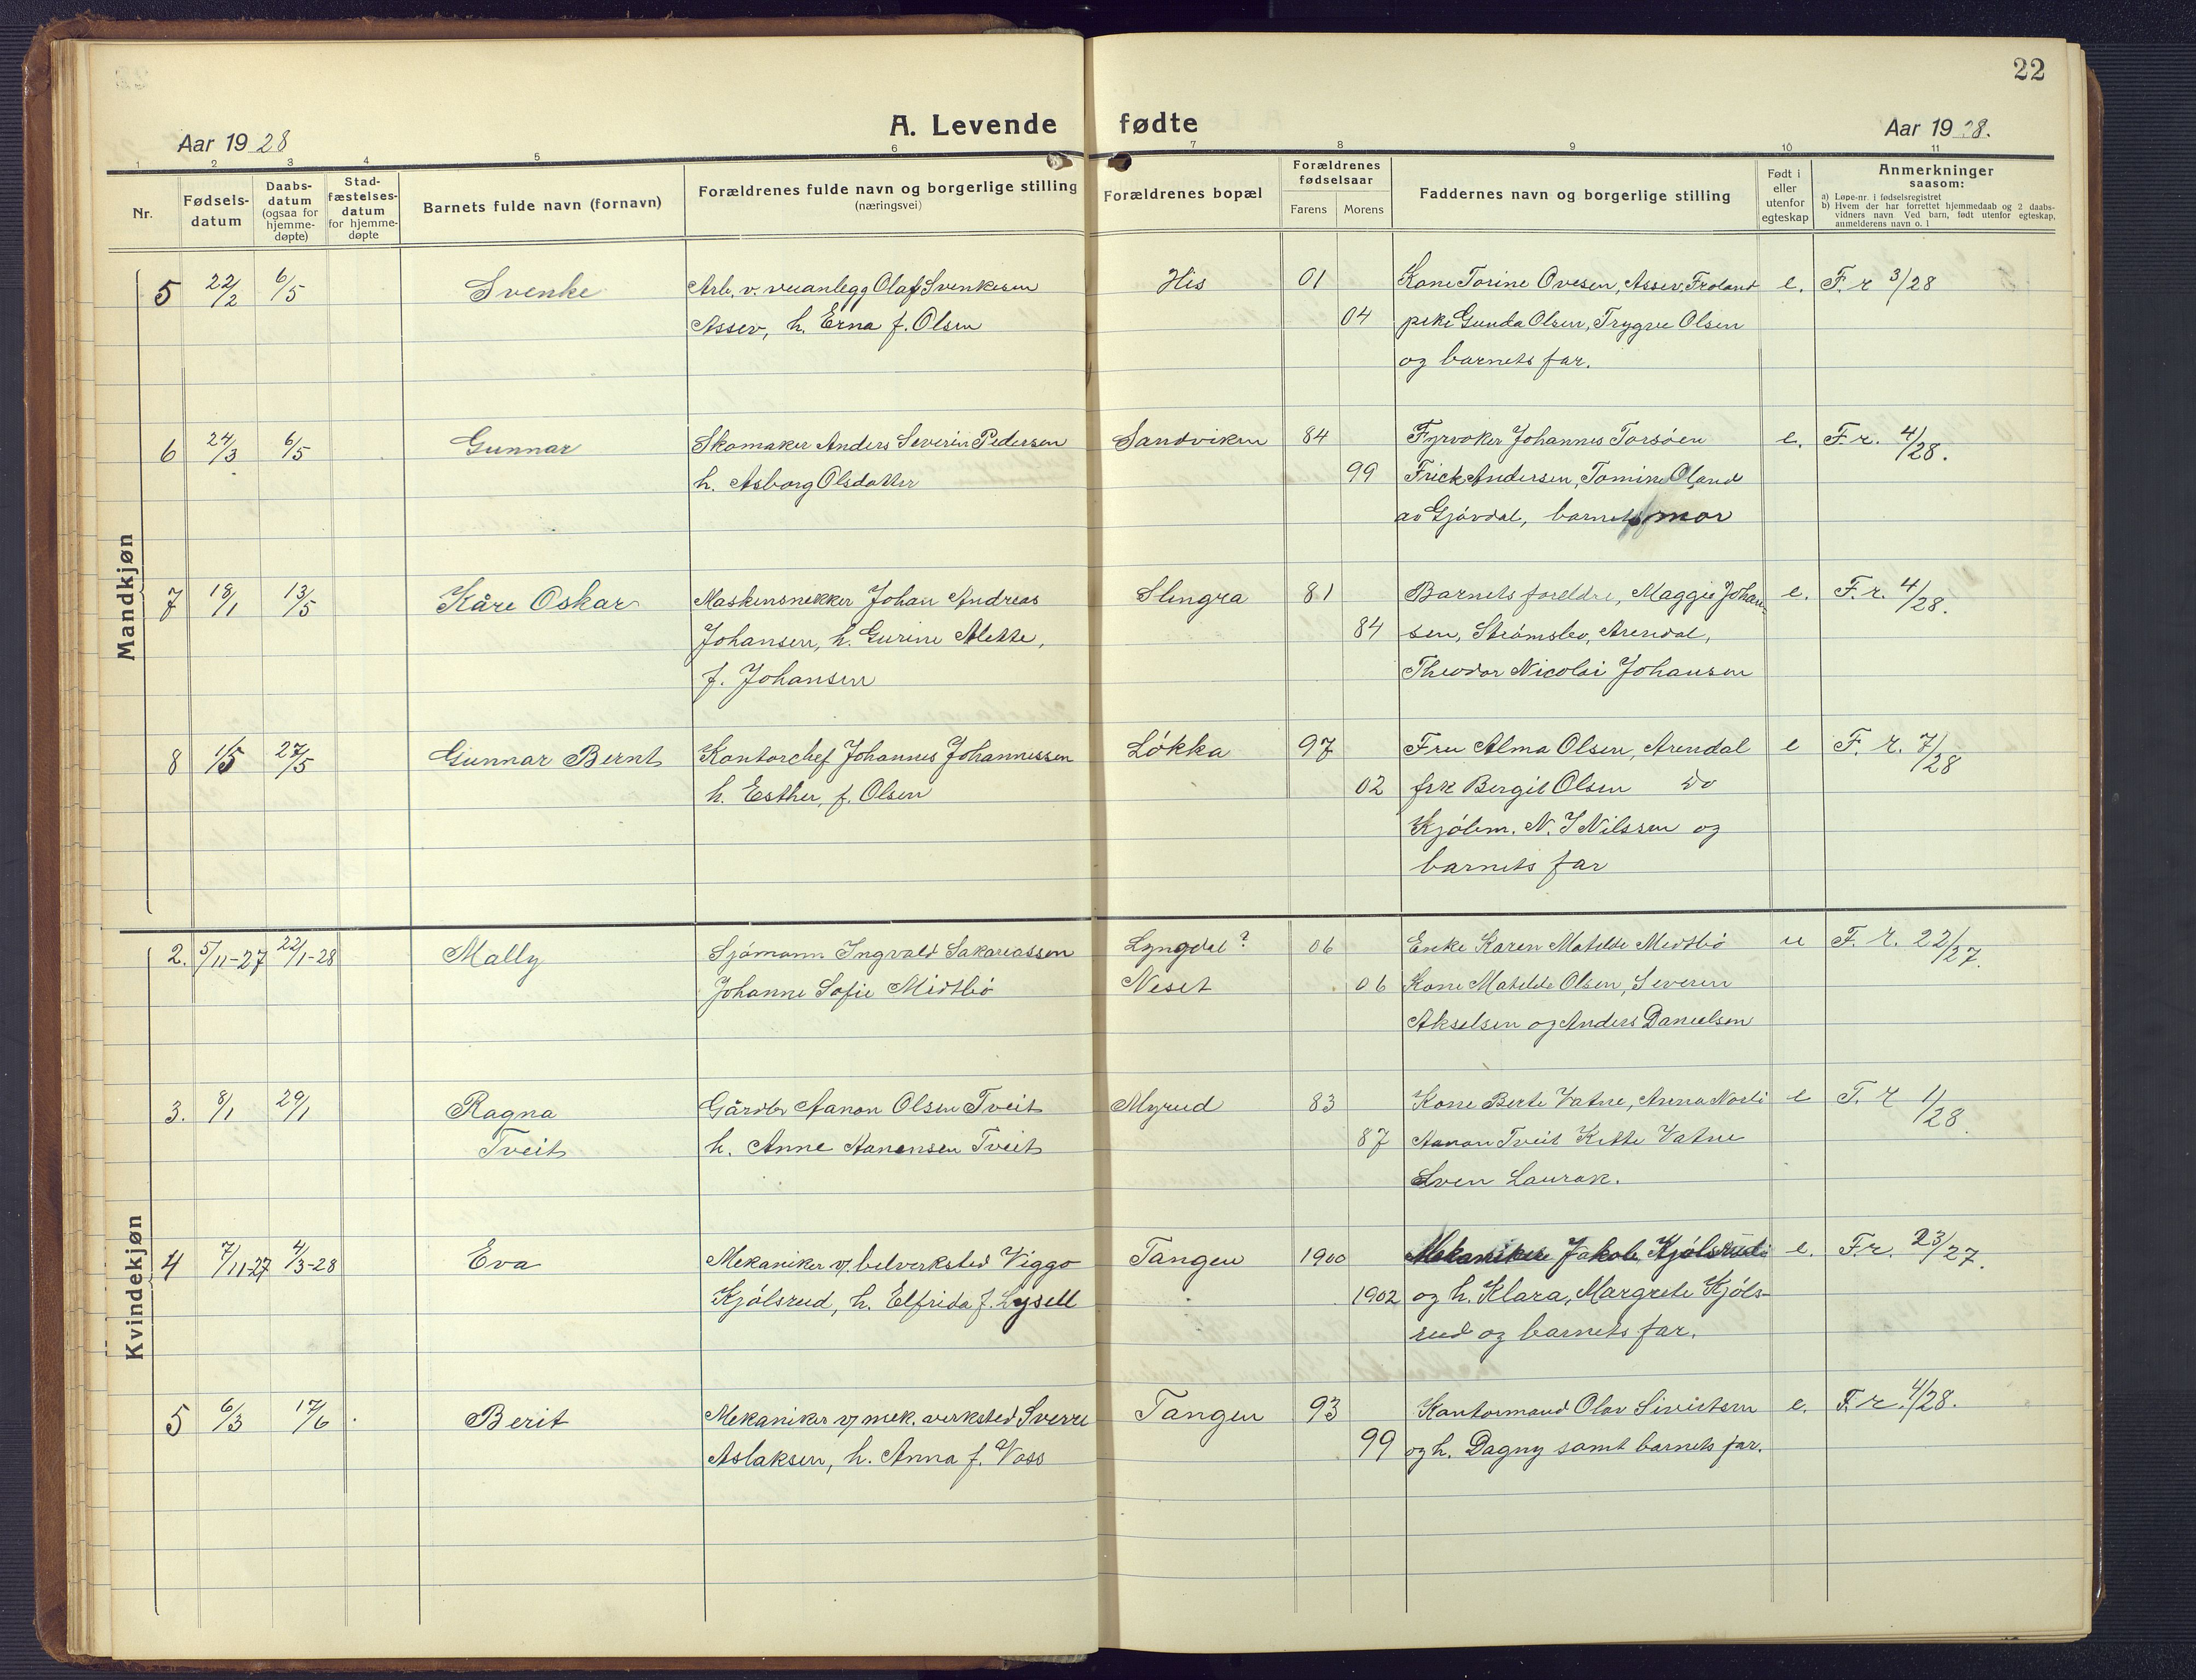 22
A. Levende fødte
Aar 1928
Aar 1928.
1 2 3 4 5 6 7 8 9 10 11
Nr.
Fødselsdatum
Daabsdatum (ogsaa for hjemmedøpte)
Stadfæstelsesdatum for hjemmedøpte
Barnets fulde navn (fornavn)
Forældrenes fulde navn og borgerlige stilling (næringsvei)
Forældrenes bopæl
Forældrenes fødselsaar
Farens Morens
Faddernes navn og borgerlige stilling
Født i eller utenfor egteskap
Anmerkninger saasom:
a) Løpe-nr. i fødselsregistret
b) Hvem der har forrettet hjemmedaab og 2 daabsvidners navn. Ved barn, født utenfor egteskap, anmelderens navn o. l
Mandkjøn
5 22/2 6/5 Svenke Arb. v. veianlegg Olaf Svenkesen His 01 Kone Torine Ovesen, Assev, Froland e. F. r 3/28
Assev, h. Erna f. Olsen 04 pike Gunda Olsen, Trygve Olsen
og barnets far.
6 24/3 6/5 Gunnar Skomaker Anders Severin Pedersen Sandviken 84 Fyrvoker Johannes Torsøen e. F. r. 4/28.
h. Asborg Olsdatter 99 Frick Andersen, Tomine Oland
av Gjøvdal, barnets mor
7 18/1 13/5 Kåre Oskar Maskinsnekker Johan Andreas Slingra 81 Barnets foreldre, Maggie Johan- e. F. r. 4/28.
Johansen, h. Gurine Alette, 84 sen, Strømsbo, Arendal,
f. Johansen Theodor Nicolai Johansen
8 1/5 27/5 Gunnar Bernt Kontorchef Johannes Johannessen Løkka 97 Fru Alma Olsen, Arendal e F. r. 7/28
h. Esther, f. Olsen 02 frk Bergit Olsen do
Kjøbm. N. J Nilssen og
barnets far
Kvindekjøn
2. 5/11-27 22/1-28 Mally Sjømann Ingvald Sakariassen Lyngdal? 06 Enke Karen Matilde Midtbø u F. r. 22/27.
Johanne Sofie Midtbø Neset 06 Kone Matilde Olsen, Severin
Akselsen og Anders Danielsen
3. 8/1 29/1 Ragna Gårdbr Aanon Olsen Tveit Myrud 83 Kone Berte Vatne, Anna Norli e F. r 1/28.
Tveit h. Anne Aanensen Tveit 87 Aanon Tveit Kitte Vatne
Sven Laurak.
4 7/11-27 4/3-28 Eva Mekaniker v/ belverksted Viggo Tangen 1900 Mekaniker Jakob Kjølsrud e. F. r. 23/27.
Kjølsrud, h. Elfrida f. Lysell 1902 og h. Klara, Margrete Kjøls-
rud og barnets far.
5 6/3 17/6 Berit Mekaniker v/ mek. verksted Sverre Tangen 93 Kontormand Olav Sivertsen e. F. r. 4/28.
Aslaksen, h. Anna f. Voss 99 og h. Dagny samt barnets far.